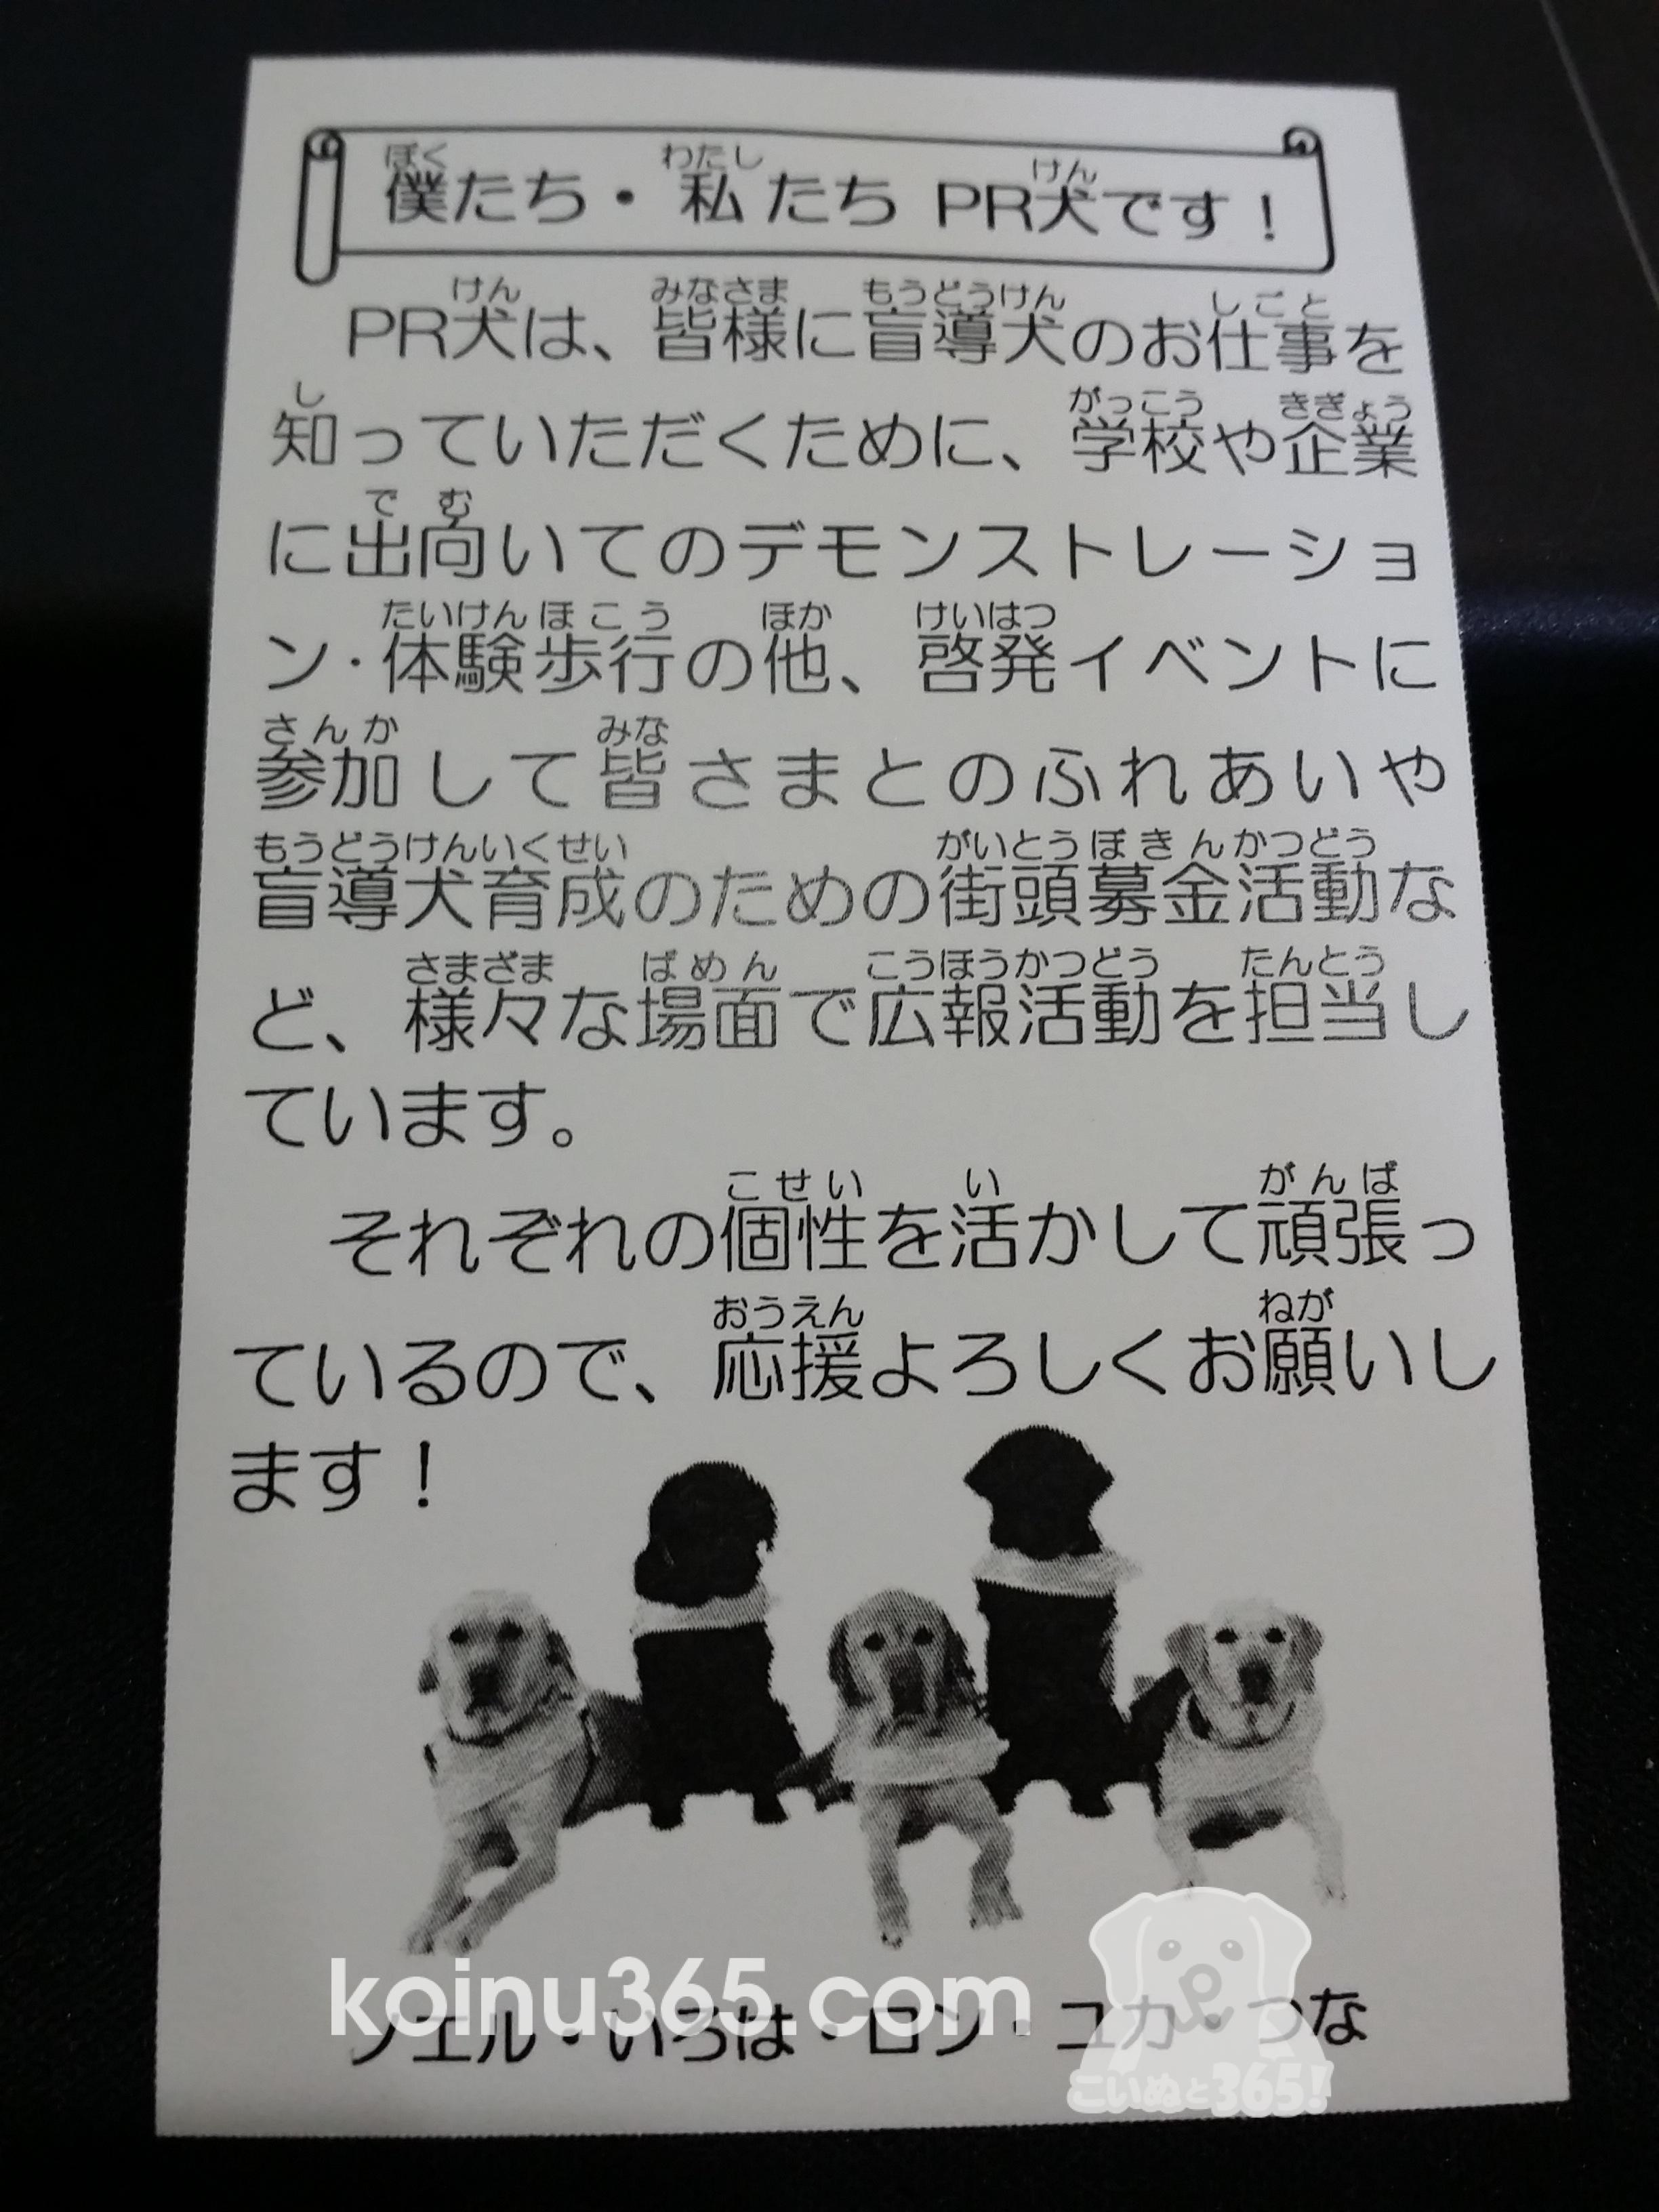 僕たち・私たち PR犬です！
PR犬は、皆様に盲導犬のお仕事を
知っていただくために、学校や企業
に出向いてのデモンストレーショ
ン・体験歩行の他、啓発イベントに
参加して皆さまとのふれあいや
盲導犬育成のための街頭募金活動な
ど、様々な場面で広報活動を担当し
ています。
それぞれの個性を活かして頑張っ
ているので、応援よろしくお願いし
ます！
koinu365.com
ノエル・いろは・ロン・ユカ・つな
こいぬと365!